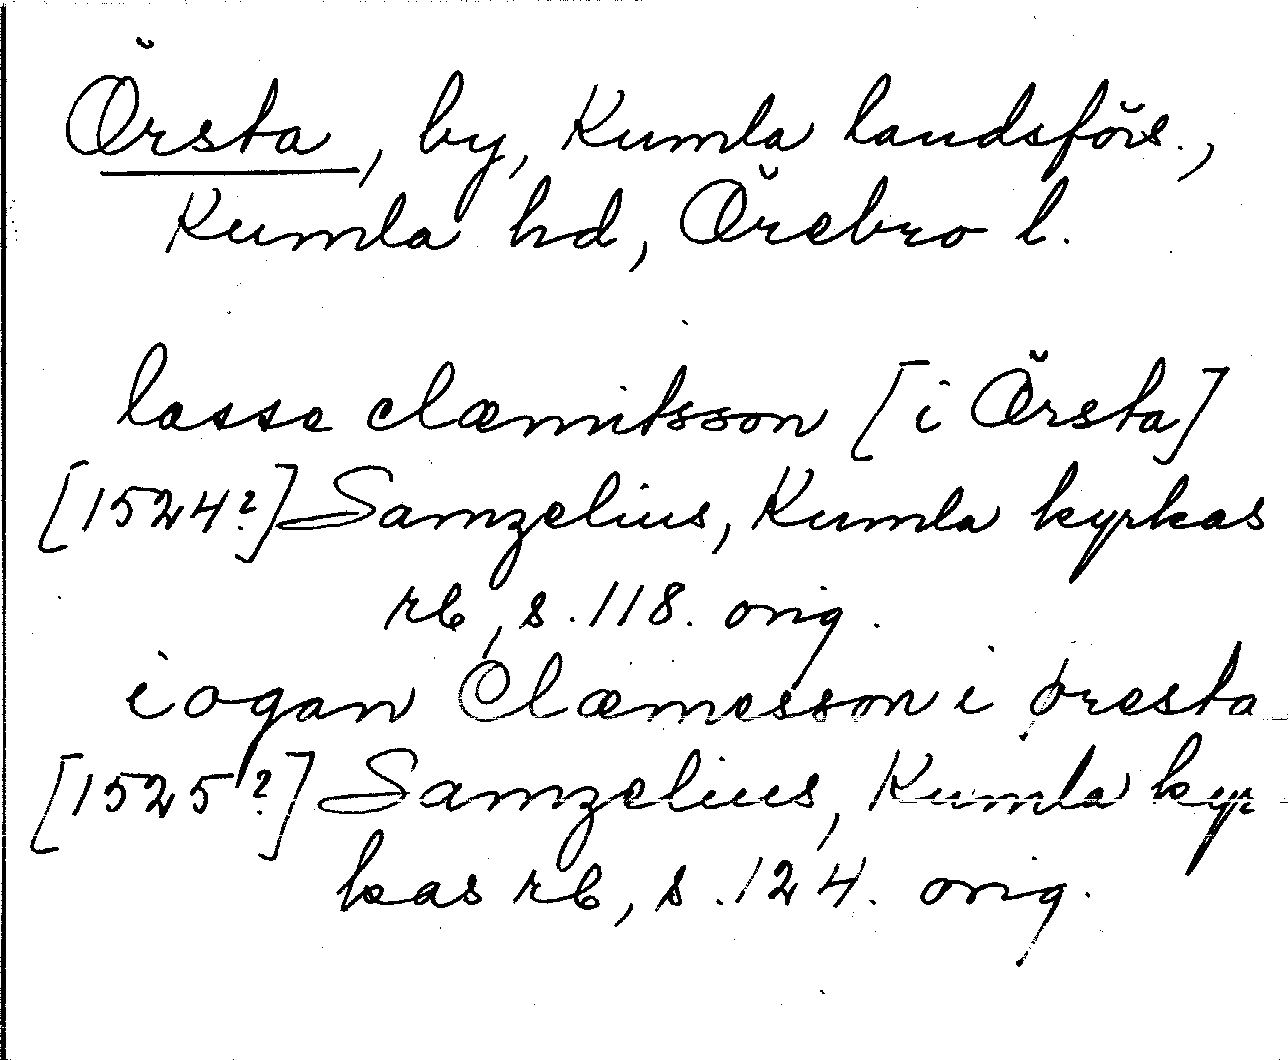 Örsta, by, Kumla landsförs.,
Kumla hd, Örebro l.
lasse clæmitsson [i Örsta]
[1524?] Samzelius, Kumla kyrkas
rb, s. 118. orig.
iogan Clæmesson i øresta
[1525?] Samzelius, Kumla kyr
kas rb, s. 124. orig.